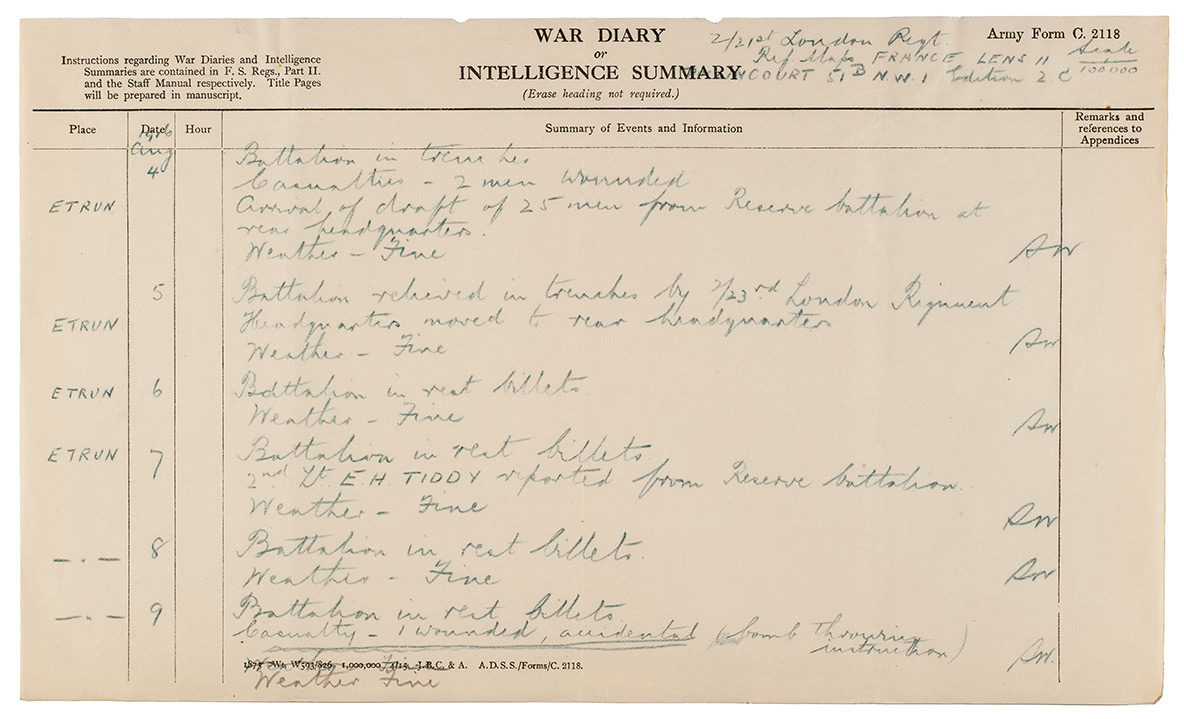 WAR DIARY
or
INTELLIGENCE SUMMARY
(Erase heading not required.)
Instructions regarding War Diaries and Intelligence
Summaries are contained in F. S. Regs., Part II.
and the Staff Manual respectively. Title Pages
will be prepared in manuscript.
2/21st London Regt.
Army Form C. 2118
Ref. Maps FRANCE LENS 11 Scale 1/100000
COURT 51B N.W. 1 Edition 2 C
Place Date Hour Summary of Events and Information Remarks and references to Appendices
1916
Aug
4 Battalion in trenches
Casualties - 2 men wounded
ETRUN Arrival of draft of 25 men from Reserve battalion at
rear headquarters.
Weather - Fine
5 Battalion relieved in trenches by 2/23rd London Regiment
ETRUN Headquarters moved to rear headquarters
Weather - Fine
ETRUN 6 Battalion in rest billets
Weather - Fine
ETRUN 7 Battalion in rest billets.
2nd Lt. E H TIDDY reported from Reserve battalion.
Weather - Fine
— " — 8 Battalion in rest billets.
Weather - Fine
— " — 9 Battalion in rest billets
Casualty - 1 wounded, accidental (bomb throwing
instruction)
1875 Wt. W593/826 1,000,000 4/15 J.B.C. & A. A.D.S.S./Forms/C. 2118.
Weather Fine